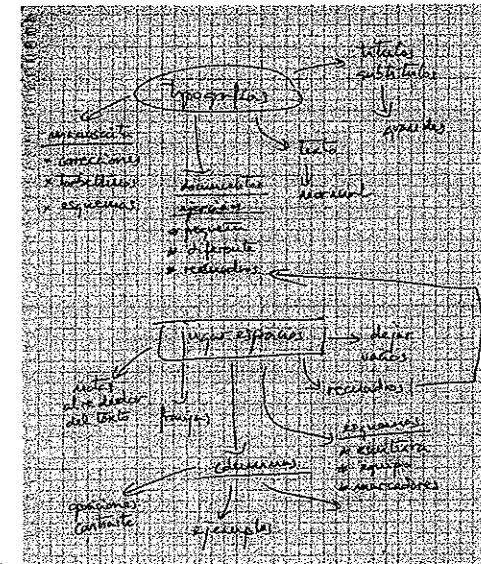 títulos
subtítulos
tipografías
grandes
manuscrita
* correcciones
* esquemas
texto
normal
documentos
* pequeña
* diferente
* recuadros
jugar espacios
dejar
vacíos
recuadros
notas
alrededor
del texto
franjas
esquemas
* escritura
* equipo
* marcadores
columnas
opiniones
contraste
ejemplos